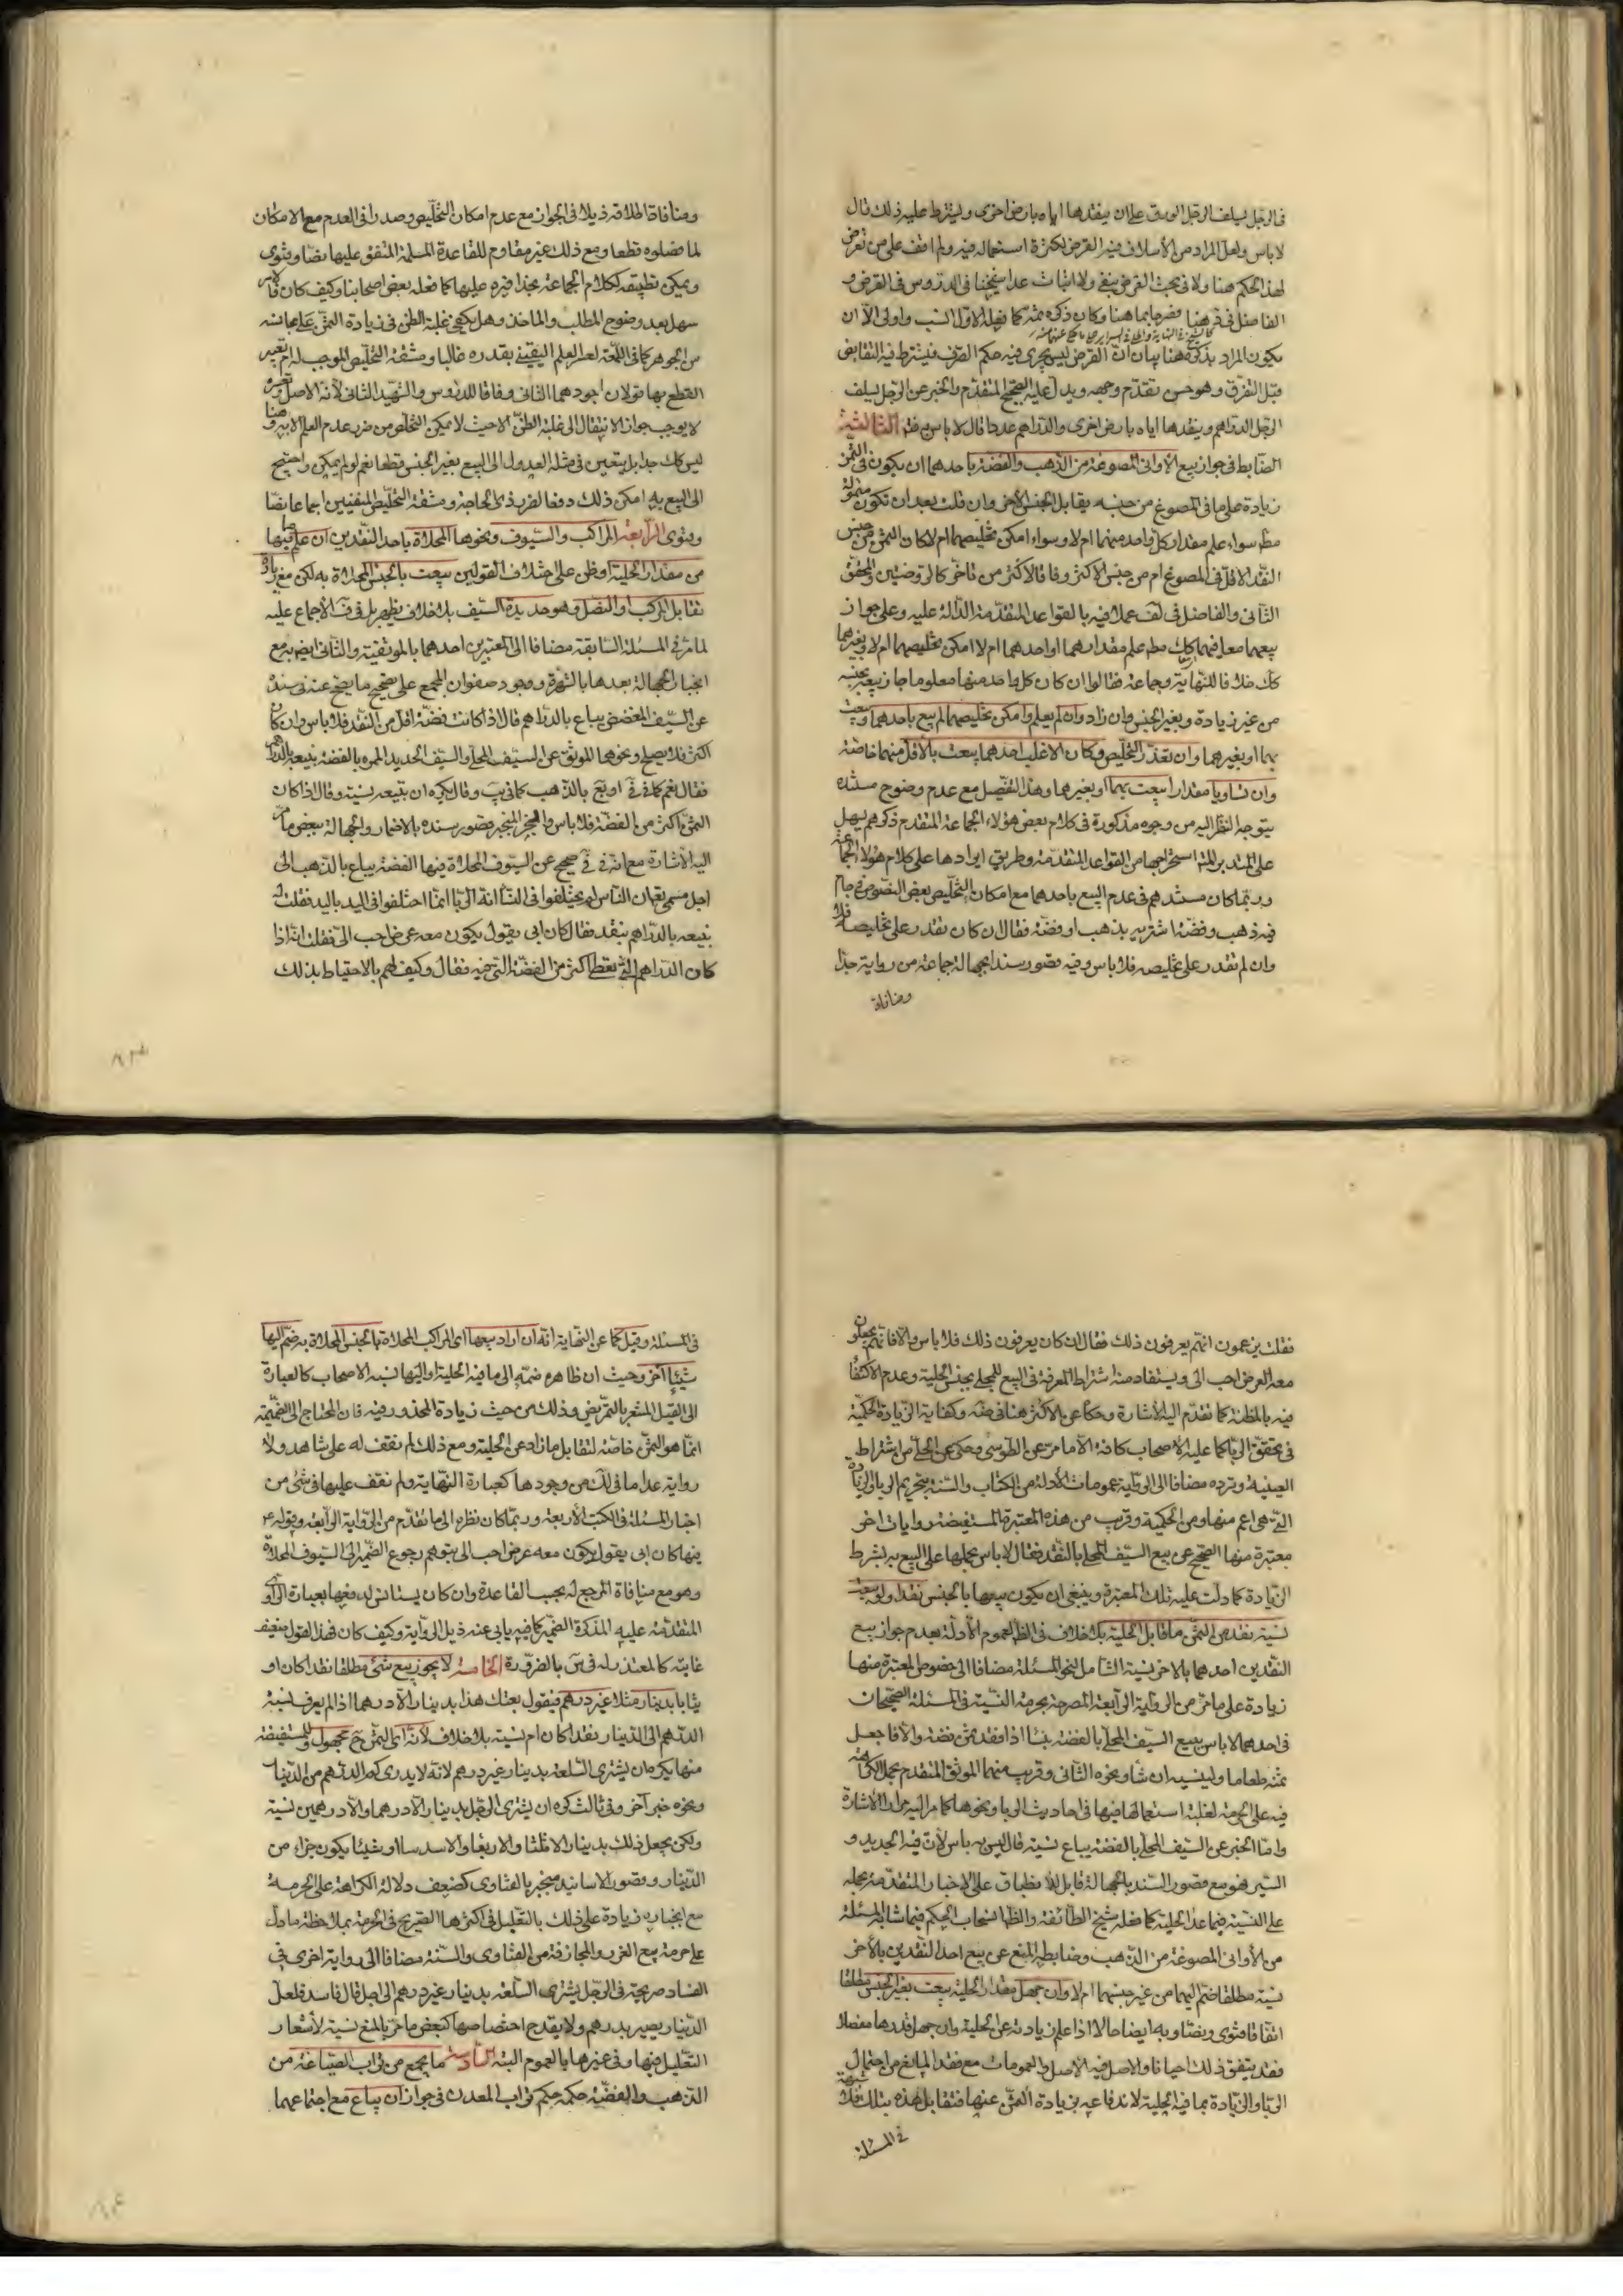 فى الرجل يسلف الرجل الورق على ان ينقدها اياه بارض اخرى ويشترط عليه ذلك قال
لا باس ولعل المراد من الأسلاف فيه القرض لكثرة استعماله فيه ولم اقف على من تعرض
لهذا الحكم هنا ولا فى بحث القرض بنفى ولا اثبات عدا شيخنا فى الدروس فى القرض و
الفاضل فى هنا
يكون المراد بذكره هنا بيان ان القرض ليس يجرى فيه حكم الصرف فيشترط فيه التقابض
قبل التفرق وهو حسن تقدم وجهه ويدل عليه الصحيح المتقدم والخبر عن الرجل يسلف
الرجل الدراهم وينقدها اياه بارض اخرى والدراهم عددا قال لا باس به الثالثة
الضابط فى جواز بيع الأوانى المصوغة من الذهب والفضة باحدهما ان يكون فى الثمن
زيادة على ما فى المصوغ من جنسه يقابل الجنس الآخر وان قلت بعد ان تكون متمولة
مطم سواء علم مقدار كل واحد منهما ام لا وسواء امكن تخليصهما ام لا كان الثمن من جنس
النقد الاقل فى المصوغ ام من جنس الاكثر وفاقا لاكثر من تاخر كالروضتين والمحقق
الثانى والفاضل فى لف عملا فيه بالقواعد المتقدمة الدالة عليه وعلى جواز
بيعهما معا فيهما كك مطم علم مقدارهما او احدهما ام لا امكن تخليصهما ام لا وبغيرهما
كك خلافا للنهاية وجماعة فقالوا ان كان كل واحد منهما معلوما جاز بيعه بجنسه
من غير زيادة وبغير الجنس وان زاد وان لم يعلم وامكن تخليصهما لم يبع باحدهما وبيعت
بهما او بغيرهما وان تعذر التخليص وكان الاغلب احدهما بيعت بالأقل منهما خاصة
وان تساويا مقدارا بيعت بهما او بغيرهما وهذا التفصيل مع عدم وضوح مستنده
يتوجه النظر اليه من وجوه مذكورة فى كلام بعض هؤلاء الجماعة المتقدم ذكرهم يسهل
على المتدبر استخراجها من القواعد المتقدمة وطريق ايرادها على كلام هؤلاء الجماعة
وربما كان مستندهم فى عدم البيع باحدهما مع امكان التخليص بعض النصوص فى جام
فيه ذهب وفضة اشتريه بذهب او فضة فقال ان كان تقدر على تخليصه فلا
وان لم تقدر على تخليصه فلا باس وفيه قصور سندا بجهالة جماعة من رواية جدا
ومنافاة
ومنافاة اطلاقه ذيلا فى الجواز مع عدم امكان التخليص وصدرا فى العدم مع الامكان
لما فصلوه قطعا ومع ذلك غير مقاوم للقاعدة المسلمة المتفق عليها نصا وفتوى
ويمكن تطبيقه لكلام الجماعة بحذافيره عليها كما فعله بعض اصحابنا وكيف كان فالأمر
سهل بعد وضوح المطلب والماخذ وهل يكفى غلبة الظن فى زيادة الثمن على مجانسه
من الجوهر كما فى اللمعة لعسر العلم اليقينى بقدره غالبا ومشقة التخليص الموجب له ام يعتبر
القطع بها قولان اجودهما الثانى وفاقا للدروس والشهيد الثانى لأنه الاصل وتعسره
لا يوجب جواز الانتقال الى غلبة الظن الا حيث لا يمكن التخلص من ضرر عدم العلم الا به وهنا
ليس كك جدا بل يتعين فى مثله العدول الى البيع بغير الجنس قطعا نعم لو لم يمكن واحتيج
الى البيع به امكن ذلك دفعا لضرر ذى الحاجة ومشقة التخليص المنفيين اجماعا نصا
وفتوى الرابعة المراكب والسيوف ونحوها المحلاة باحد النقدين ان علم ما فيها
من مقدار الحلية او ظن على اختلاف القولين بيعت بالجنس المحلاة به لكن مع زيادة
تقابل المركب او النصل وهو حديدة السيف بلا خلاف يظهر بل فى الاجماع عليه
لما مر فى المسئلة السابقة مضافا الى المعتبرين احدهما بالموثقية والثانى ايضا به مع
انجبار الجهالة بعدها بالشهرة ووجود صفوان المجمع على تصحيح ما يصح عنه فى سنده
عن السيف المفضض يباع بالدراهم فقال اذا كانت فضته اقل من النقد فلا باس وان كان
اكثر فلا يصلح ونحوها الموثق عن السيف المحلى والسيف الحديد المموه بالفضة نبيعه بالدراهم
فقال نعم كما فى او بع بالذهب كما فى يب وقال يكره ان تبيعه بنسية وقال اذا كان
الثمن اكثر من الفضة فلا باس والخبر المنجبر قصور سنده بالاضمار والجهالة ببعض ما مر
اليه الاشارة مع انه فى صحيح عن السيوف المحلاة فيها الفضة يباع بالذهب الى
اجل مسمى فقال ان الناس لم يختلفوا فى النسا انه الربا انما اختلفوا فى اليد باليد فقلت له
نبيعه بالدراهم بنقد فقال كان ابى يقول يكون معه عرض احب الى فقلت اذا
كان الدراهم التى تعطى اكثر من الفضة التى فيه فقال وكيف لهم بالاحتياط بذلك
فقلت يزعمون انهم يعرفون ذلك فقال ان كان يعرفون ذلك فلا باس والا فانهم يجعلون
معه العرض احب الى ويستفاد منه اشتراط المعرفة فى البيع للمحلى بجنس الحلية وعدم الاكتفاء
فيه بالمظنة كما تقدم اليه الأشارة وحكاه عن الاكثر هنا فى ضه وكفاية الزيادة الحكمية
فى تحقق الربا كما عليه الاصحاب كافة الا ما مر عن الطوسى وحكى عن الحلى من اشتراط
العينية ويرده مضافا الى الرواية عمومات الأدلة من الكتاب والسنة بتحريم الربا والزيادة
التى هى اعم منها ومن الحكمية وقريب من هذه المعتبرة المستفيضة روايات اخر
معتبرة منها الصحيح عن بيع السيف المحلى بالنقد فقال لا باس بحملها على البيع به بشرط
الزيادة كما دلت عليه تلك المعتبرة وينبغى ان يكون بيعها بالجنس نقدا ولو بيعت
نسية نقد من الثمن ما قابل الحلية بلا خلاف فى الظ لعموم الأدلة بعدم جواز بيع
النقدين احدهما بالاخر نسية الشامل لنحو المسئلة مضافا الى خصوص المعتبرة منها
زيادة على ما مر من الرواية الرابعة المصرحة بحرمة النسية فى المسئلة الصحيحان
فى احدهما لا باس ببيع السيف المحلى بالفضة بنسا اذا نقد ثمن فضته والا فاجعل
ثمنه طعاما ولينسيه ان شاء ونحوه الثانى وقريب منهما الموثق المتقدم بحمل الكراهة
فيه على الحرمة لغلبة استعمالها فيها فى احاديث الربا ونحوها كما مر اليه مرارا الاشارة
واما الخبر عن السيف المحلى بالفضة يباع نسية قال ليس به باس لأن فيه الحديد و
السير فهو مع قصور السند بالجهالة قابل للانطباق على الاخبار المتقدمة بحمله
على النسية فيما عدا الحلية كما فعله شيخ الطائفة والظاهر انسحاب الحكم فيما شابه المسئلة
من الأوانى المصوغة من الذهب وضابطه المنع عن بيع احد النقدين بالآخر
نسية مطلقا ضم اليهما من غير جنسهما ام لا وان جهل مقدار الحلية بيعت بغير الجنس مطلقا
اتفاقا فتوى ونصا وبه ايضا حالا اذا علم زيادته عن الحلية وان جهل قدرها مفصلا
فقد يتفق ذلك احيانا والاصل فيه الاصل والعمومات مع فقد المانع من احتمال
الربا والزيادة بما فيه الحلية لاندفاعه بزيادة الثمن عنها فتقابل هذه بتلك فلا شبهة
فى المسئلة
فى المسئلة وقيل كما عن النهاية انه ان اراد بيعها اى المراكب المحلاة بالجنس المحلاة به ضم اليها
شيئا آخر وحيث ان ظاهره ضمه الى ما فيه الحلية او اليها نسبه الاصحاب كالعبارة
الى القيل المشعر بالتمريض وذلك من حيث زيادة المحذور فيه فان المحتاج الى الضميمة
انما هو الثمن خاصة لتقابل ما زاد عن الحلية ومع ذلك لم نقف له على شاهد ولا
رواية عدا ما فى لك من وجودها كعبارة النهاية ولم نقف عليها فى شئ من
اخبار المسئلة فى الكتب الأربعة وربما كان نظره الى ما تقدم من الرواية الرابعة وقوله ع
فيها كان ابى يقول يكون معه عرض احب الى بتوهم رجوع الضمير الى السيوف المحلاة
وهو مع منافاة المرجع له بحسب القاعدة وان كان يستانس لدفعها بعبارة الراوى
المتقدمة عليه المذكرة الضمير كما فيه يابى عنه ذيل الرواية وكيف كان فهذا القول ضعيف
غايته كالمعتذر له فى س بالضرورة الخامسة لا يجوز بيع شئ مطلقا نقدا كان او
ثيابا بدينار مثلا غير درهم فيقول بعتك هذا بدينار الا درهما اذا لم يعرف نسبة
الدرهم الى الدينار نقدا كان ام نسية بلا خلاف لأنه اى الثمن ح مجهول وللمستفيضة
منها يكره ان يشترى السلعة بدينار غير درهم لانه لا يدرى كم الدرهم من الدينار
ونحوه خبر آخر وفى ثالث كره ان يشترى الرجل بدينار الا درهما والا درهمين نسية
ولكن يجعل ذلك بدينار الا ثلثا والا ربعا والا سدسا او شيئا يكون جزءا من
الدينار وقصور الاسانيد منجبر بالفتاوى كضعف دلالة الكراهة على الحرمة
مع انجباره زيادة على ذلك بالتعليل فى اكثرها الصريح فى الحرمة بملاحظة ما دل
على حرمة بيع الغرر والمجازفة من الفتاوى والسنة مضافا الى رواية اخرى فى
الفساد صريحة فى الرجل يشترى السلعة بدينار غير درهم الى اجل قال فاسد فلعل
الدينار يصير بدرهم ولا يقدح اختصاصها كبعض ما مر بالمنع نسية لأشعار
التعليل فيها وفى غيرها بالعموم البتة السادسة ما يجمع من تراب الصياغة من
الذهب والفضة حكمه حكم تراب المعدن فى جواز ان يباع مع اجتماعهما